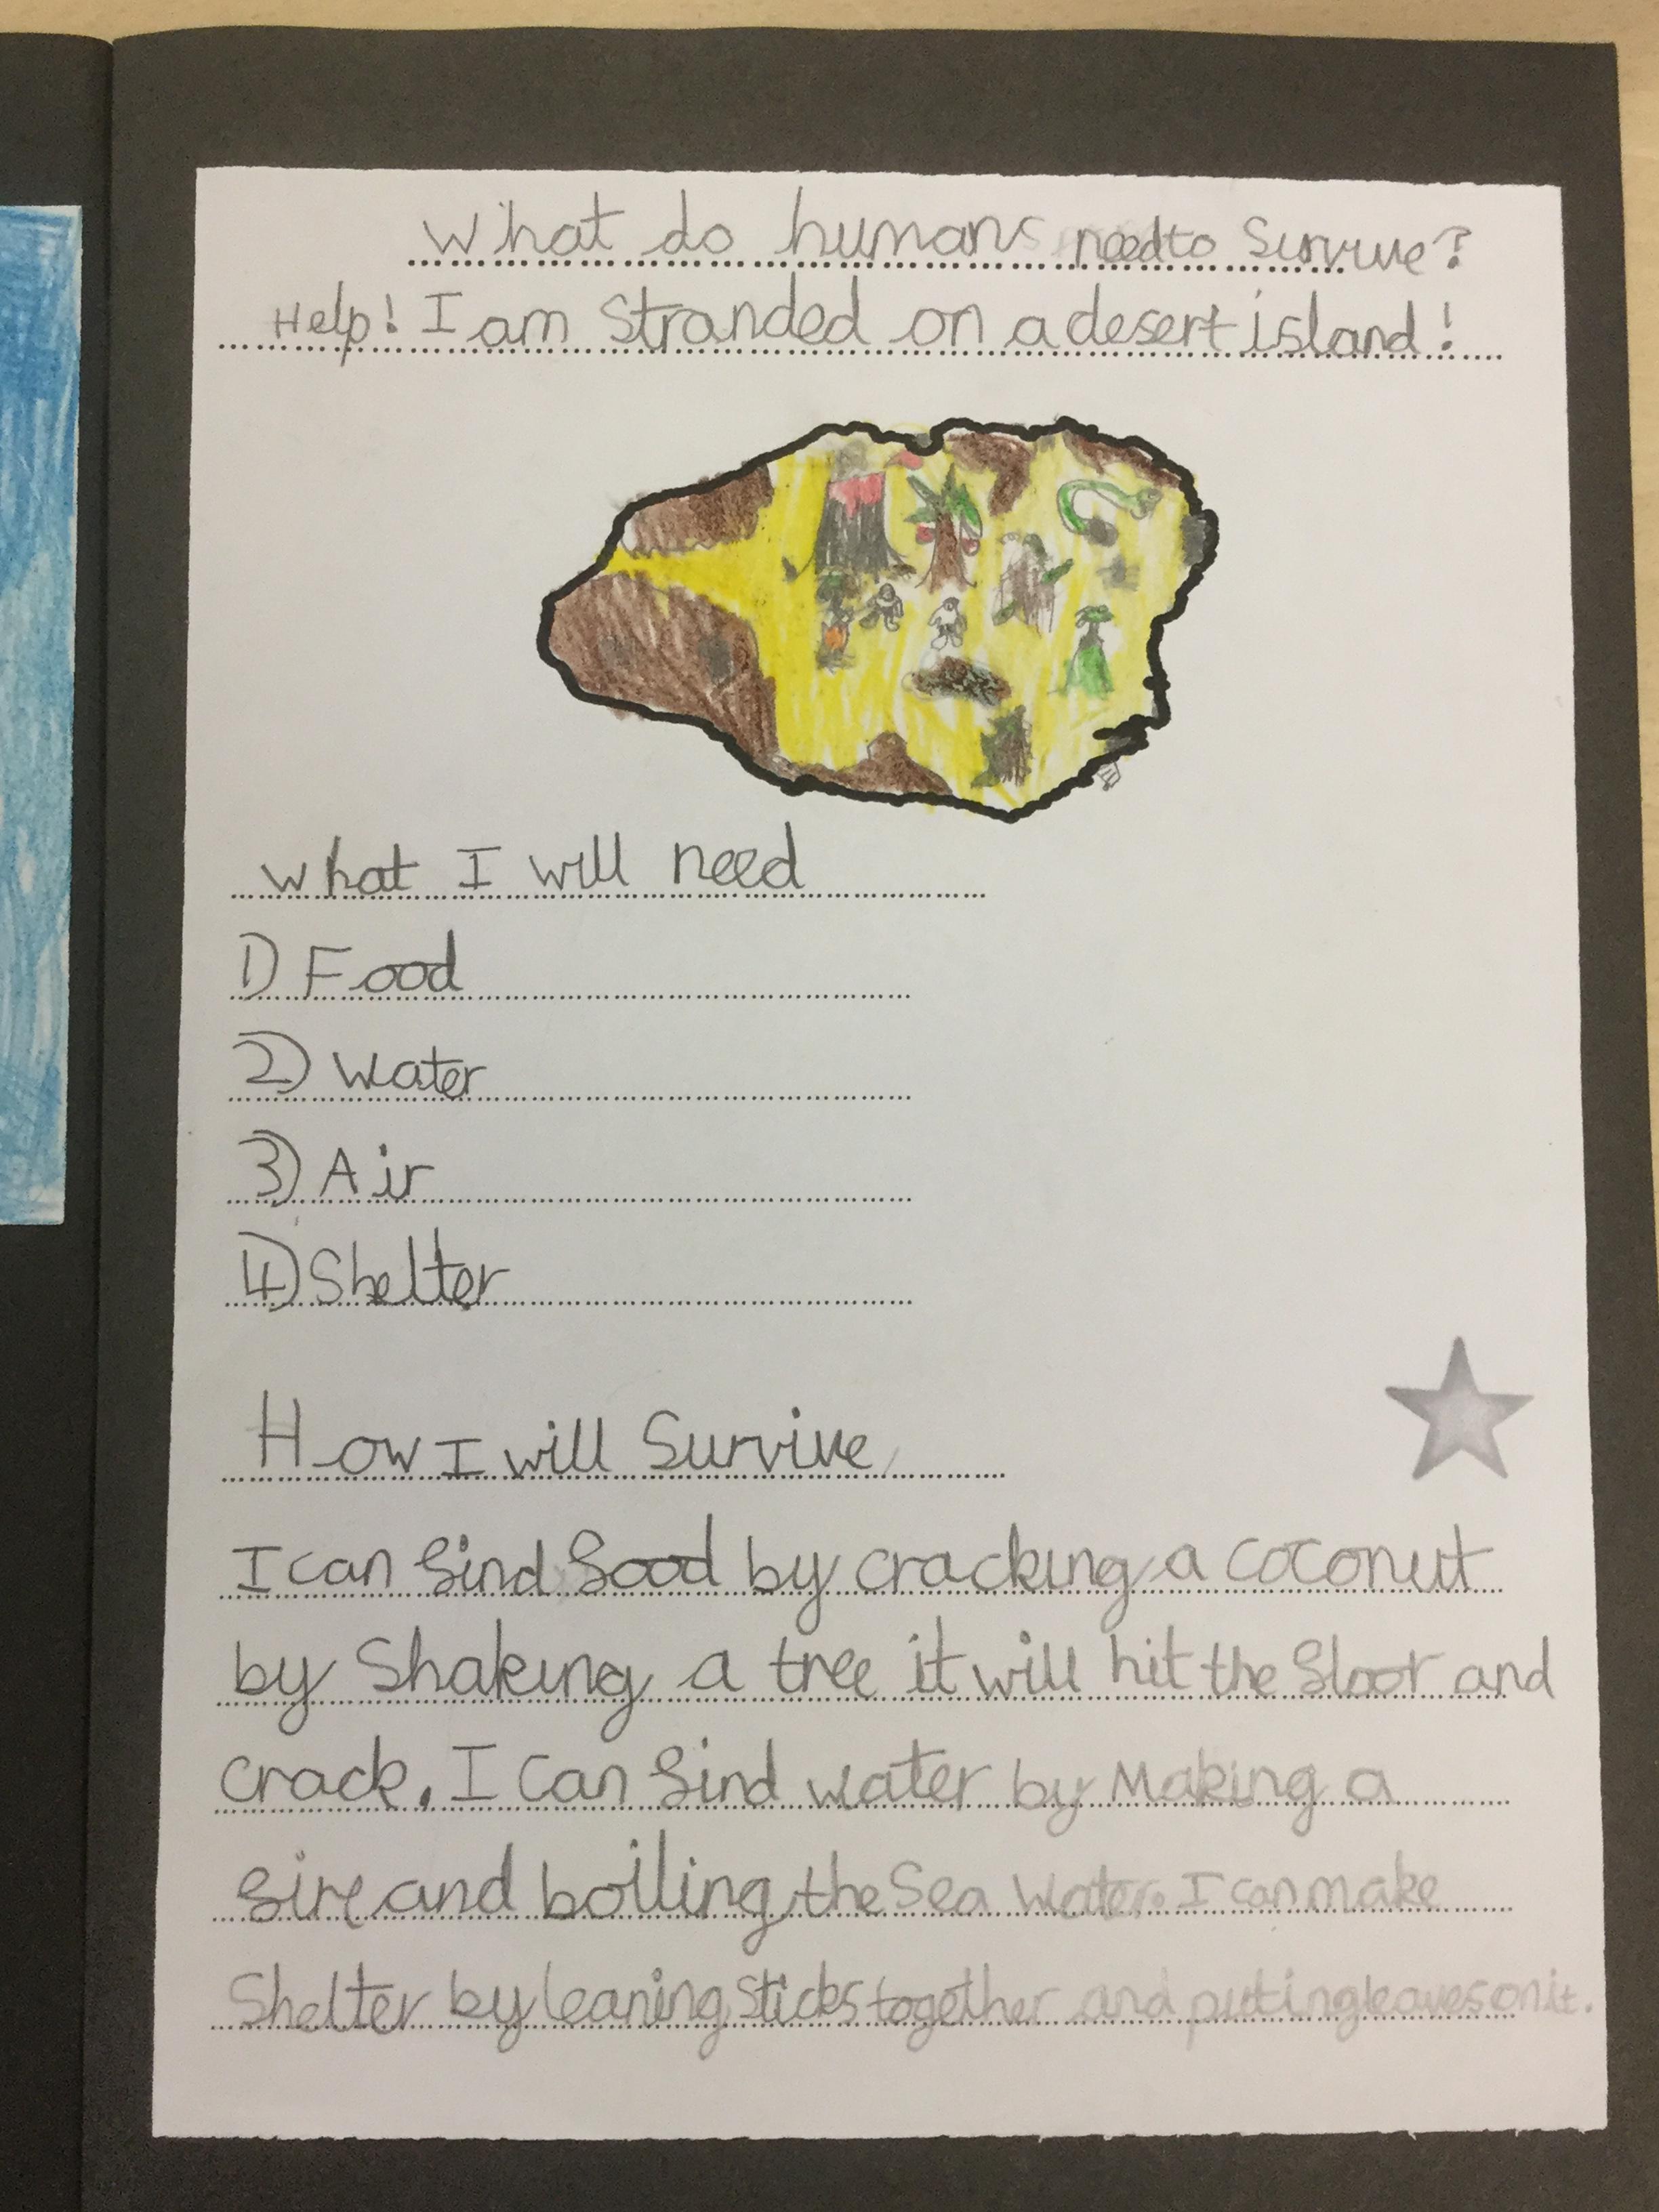 What do humans need to survive?
Help! I am stranded on a desert island!
What I will need
1) Food
2) Water
3) Air
4) Shelter
How I will survive
I can find food by cracking a coconut
by shaking a tree it will hit the floor and
crack. I can find water by Making a
fire and boiling the sea water. I can make
shelter by leaning sticks together and puting leaves on it.